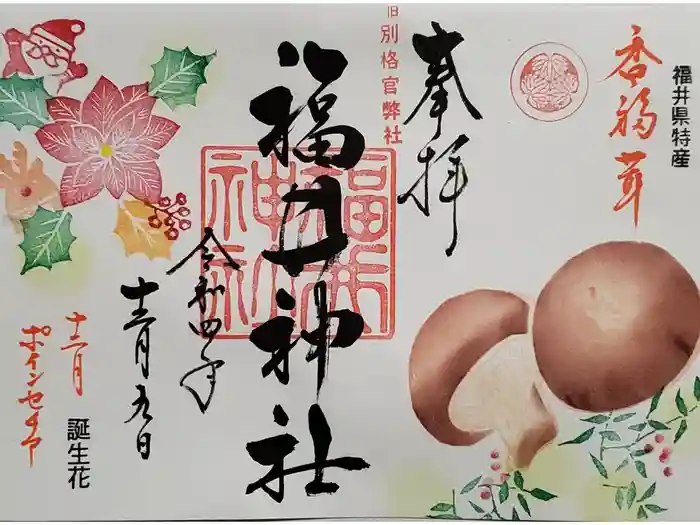 福井県特産
香福茸
奉拝
旧別格官幣社
福井神社
福井神社印
令和四年
十二月九日
十二月
誕生花
ポインセチア